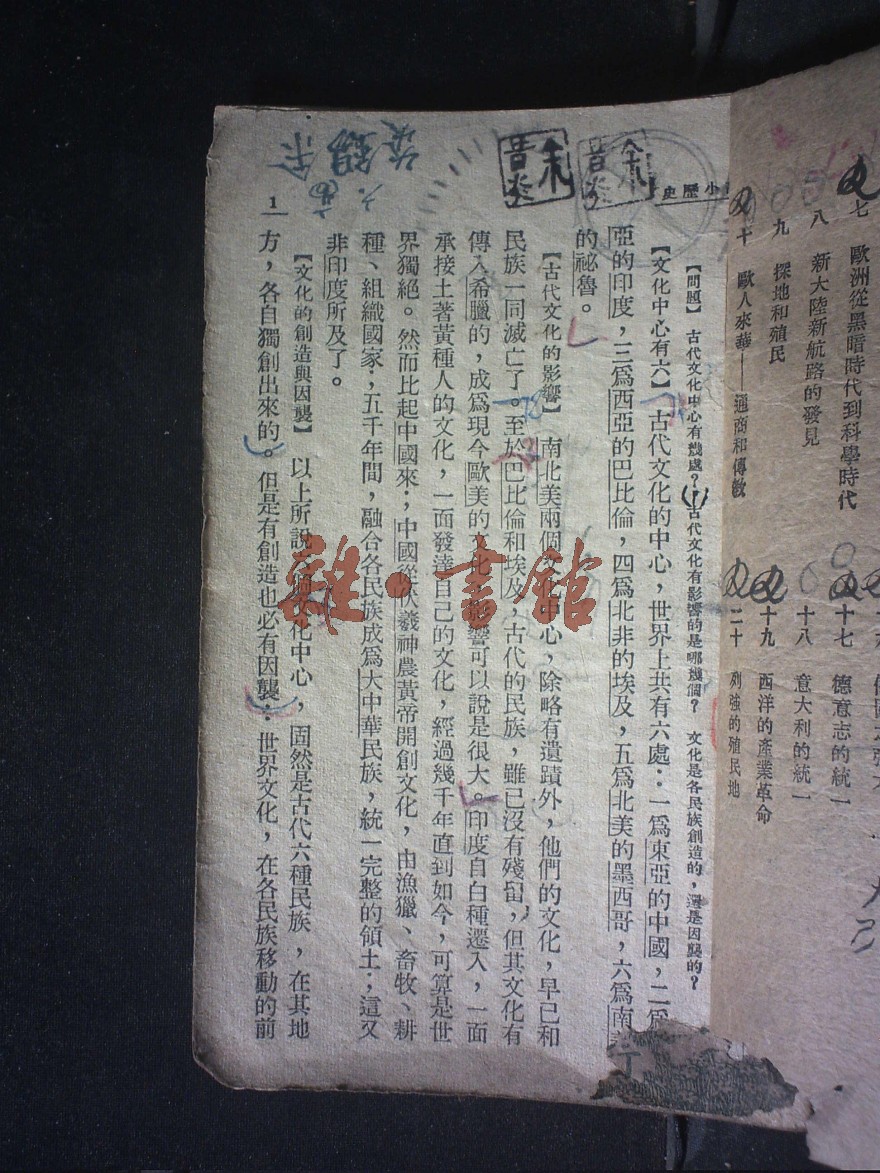 七 歐洲從黑暗時代到科學時代
八 新大陸新航路的發見
九 探地和殖民
十 歐人來華——通商和傳敎
十七 德意志的統一
十八 意大利的統一
十九 西洋的產業革命
二十 列強的殖民地
小歷史
【問題】 古代文化中心有幾處？ 古代文化有影響的是哪幾個？ 文化是各民族創造的，還是因襲的？
【文化中心有六】 古代文化的中心，世界上共有六處：一爲東亞的中國，二爲
亞的印度，三爲西亞的巴比倫，四爲北非的埃及，五爲北美的墨西哥，六爲南
的祕魯。
【古代文化的影響】 南北美兩個文化中心，除略有遺蹟外，他們的文化，早已和
民族一同滅亡了。至於巴比倫和埃及，古代的民族，雖已沒有殘留，但其文化有
傳入希臘的，成爲現今歐美的文化，影響可以說是很大。印度自白種遷入，一面
承接土著黃種人的文化，一面發達自己的文化，經過幾千年直到如今，可算是世
界獨絕。然而比起中國來，中國從伏羲神農黃帝開創文化，由漁獵、畜牧、耕
種、組織國家；五千年間，融合各民族成爲大中華民族，統一完整的領土；這又
非印度所及了。
【文化的創造與因襲】 以上所說六個文化中心，固然是古代六種民族，在其地
方，各自獨創出來的。但是有創造也必有因襲：世界文化，在各民族移動的前
1
雜·書館